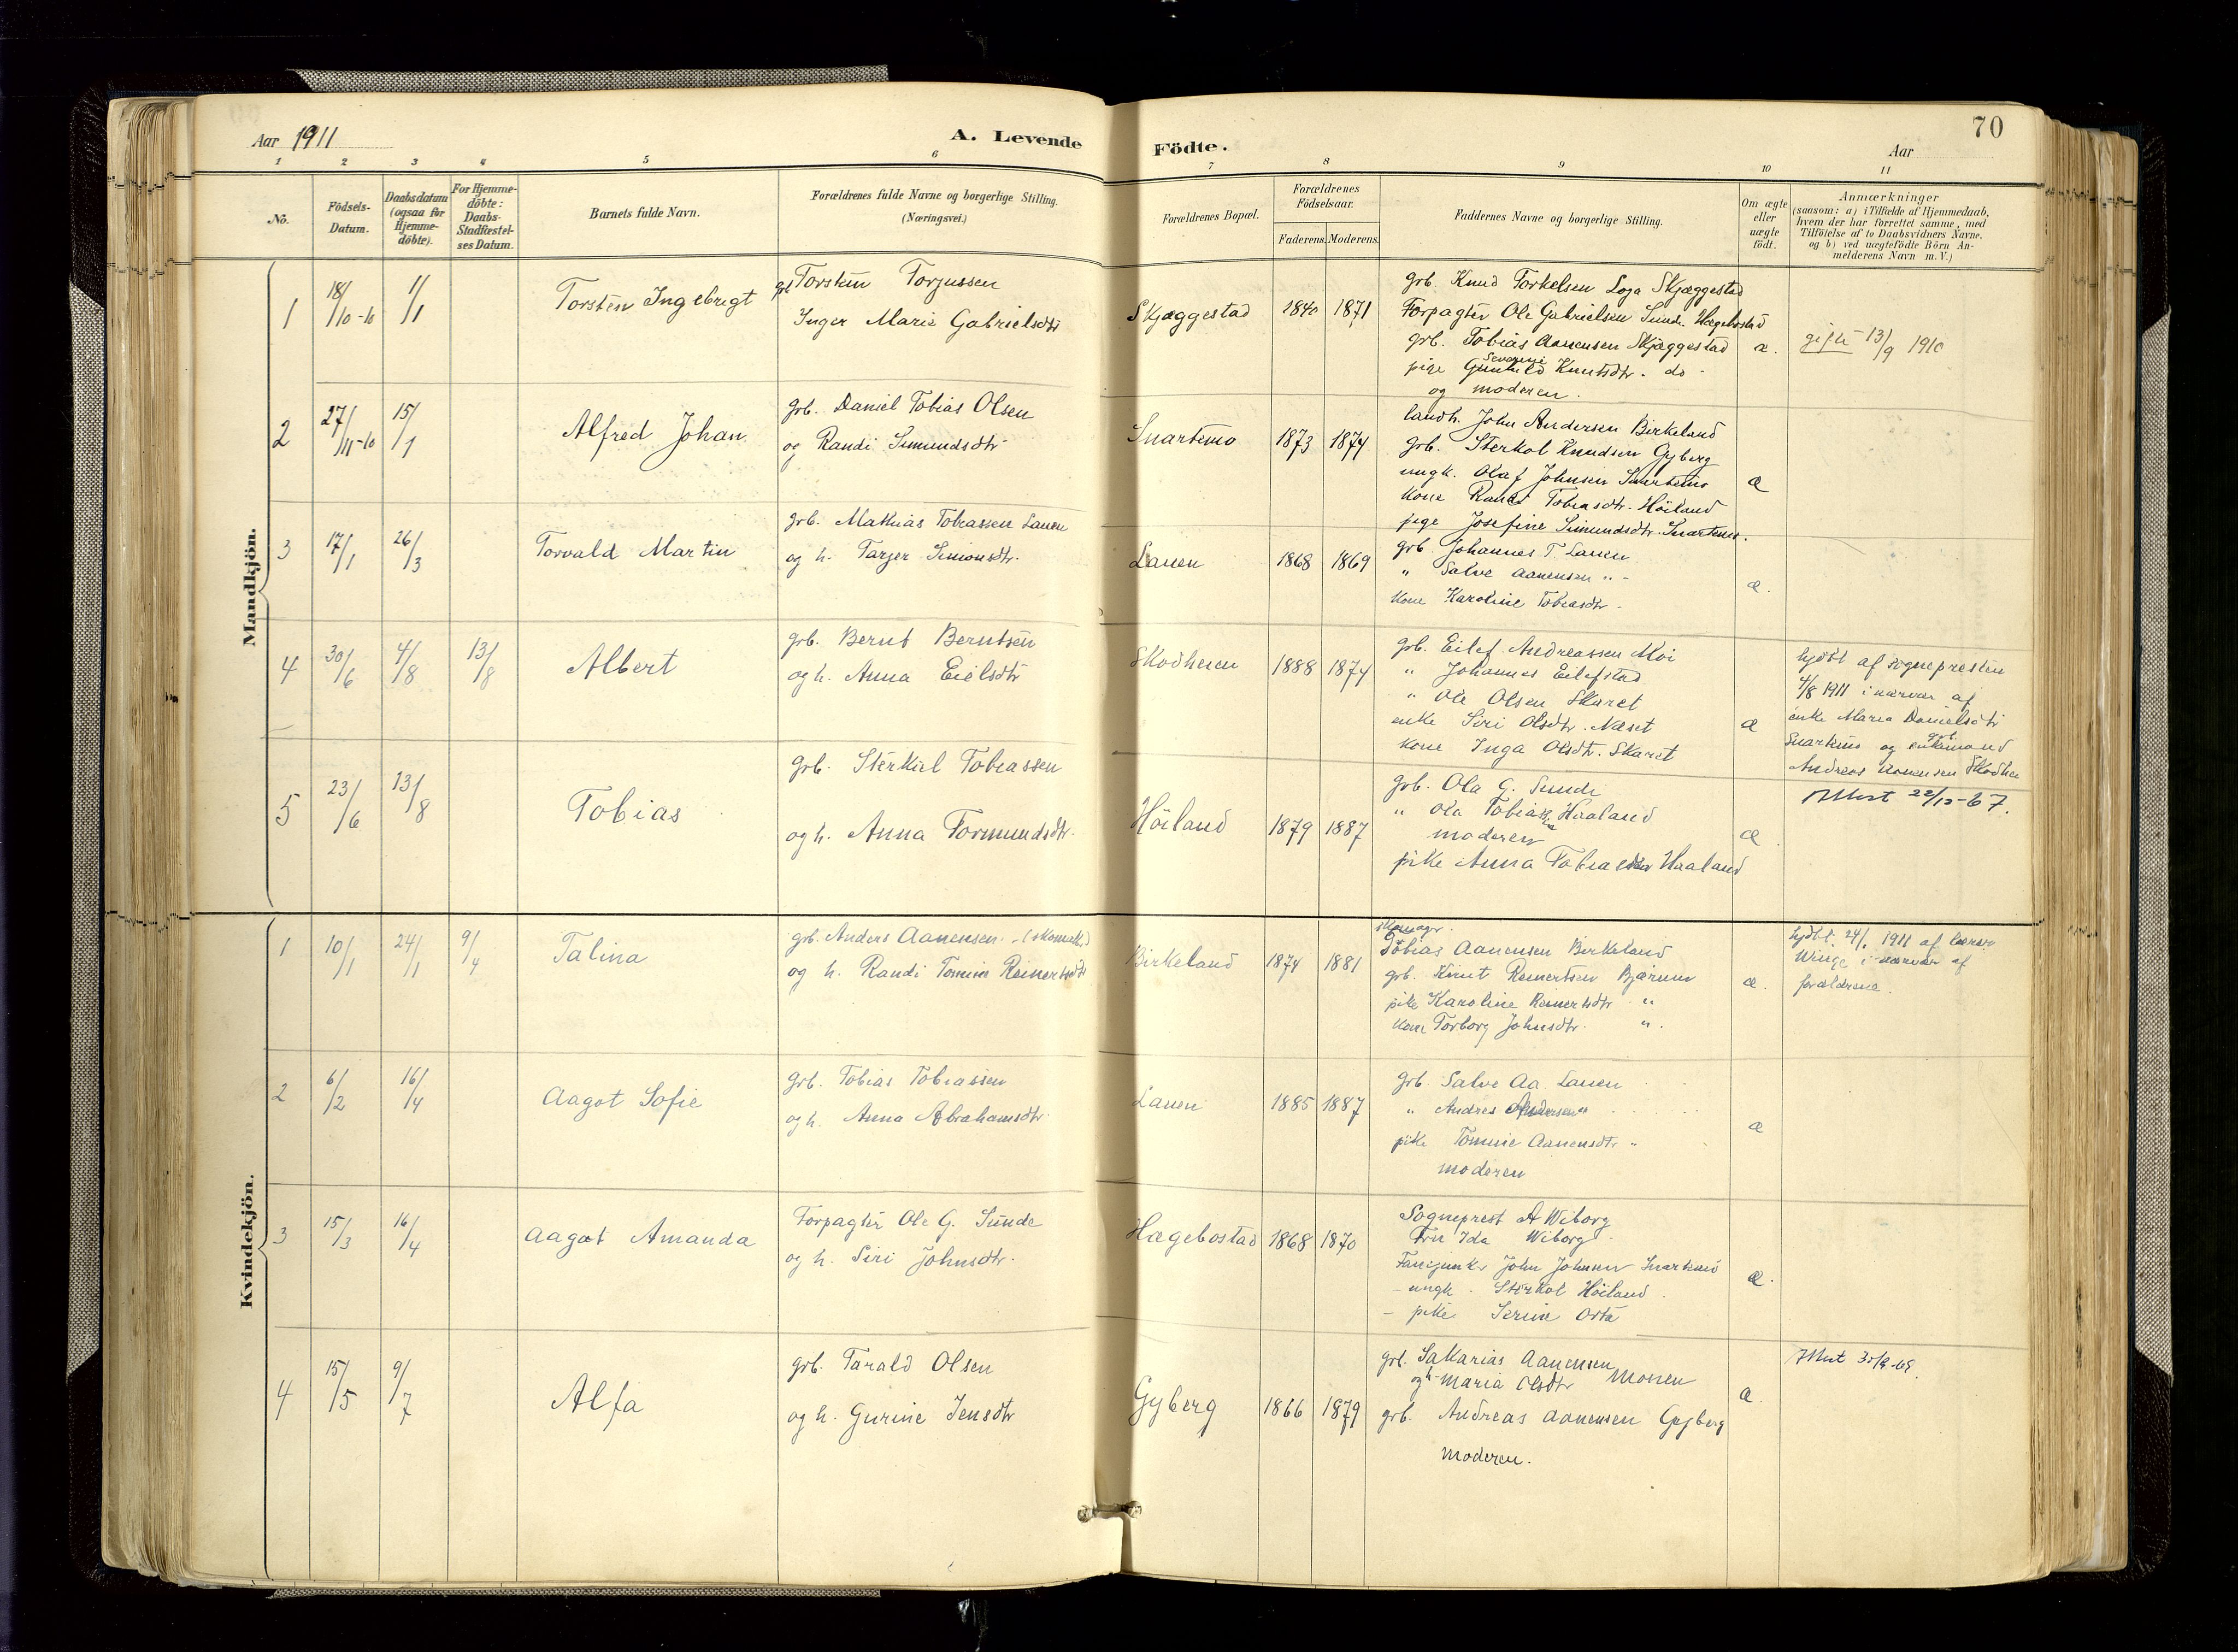 Aar 1911
A. Levende
Födte.
Aar
70
1 2 3 4 5 6 7 8 9 10 11
No.
Födsels-
Datum.
Daabsdatum
(ogsaa for
Hjemme-
döbte).
For Hjemme-
döbte:
Daabs-
Stadfæstel-
ses Datum.
Barnets fulde Navn.
Forældrenes fulde Navne og borgerlige Stilling.
(Næringsvei.)
Forældrenes Bopæl.
Forældrenes
Födselsaar.
Faderens.
Moderens.
Faddernes Navne og borgerlige Stilling.
Om ægte
eller
uægte
födt.
Anmærkninger
(saasom: a) i Tilfælde af Hjemmedaab,
hvem der har forrettet samme, med
Tilföielse af to Daabsvidners Navne.
og b) ved uægtefödte Börn An-
melderens Navn m. V.)
Mandkjön.
1
18/10-10
1/1
Torsten Ingebregt
gb. Torstein Torjussen
Inger Marie Gabrielsdtr
Skjæggestad
1840
1871
grb. Knud Torkelsen Loga Skjæggestad
Forpagter Ole Gabrielsen Sunde. Hægebostad
grb. Tobias Aanensen Skjæggestad
pige Gunhild Knutsdtr. do
og moderen.
æ.
gifte 13/9 1910
2
27/11-10
15/1
Alfred Johan
grb. Daniel Tobias Olsen
og Randi Simundsdtr
Snartemo
1873
1874
landh. John Andersen Birkeland
grb. Sterkol Knudsen Gyberg
ungk. Olaf Johnsen Snartemo
kone Randi Tobiasdtr. Höiland
pige Josefine Simundsdtr. Snartemo.
æ
3
17/1
26/3
Torvald Martin
grb. Mathias Tobiassen Lauen
og h. Tarjer Simonsdtr.
Lauen
1868
1869
grb. Johannes T. Lauen
" Salve Aanensen "
kone Karoline Tobiasdtr.
æ.
4
30/6
4/8
13/8
Albert
grb. Bernt Berntsen
og h. Anna Eielsdtr
Skodheien
1888
1874
grb. Eilef Andreassen Moi
" Johannes Eilefstad
" Ole Olsen Skaret
enke Siri Olsdtr. Næset
kone Inga Olsdtr. Skaret
æ
hjdbt af sognepresten
4/8 1911 i nærvær af
enke Maria Danielsdtr
Snartemo og enkemand
Andreas Aanensen Skodhei
5
23/6
13/8
Tobias
grb. Sterkel Tobiassen
og h. Anna Tormundsdtr.
Höiland
1879
1887
grb. Ola G. Sunde
" Ola Tobiass. Haaland
moderen
pike Anna Tobiasdtr Haaland
æ
Attest 22/12-67.
Kvindekjön.
1
10/1
24/1
9/4
Talina
grb. Anders Aanensen. (skomak.)
og h. Randi Tomine Reinertsdtr
Birkeland
1874
1881
Tobias Aanensen Birkeland
grb. Knut Reinertsen Bjærum
pike Karoline Reinertsdtr "
kone Torborg Johnsdtr. ".
æ.
hjdbt. 24/1 1911 af lærer
Winge i nærvær af
forældrene.
2
6/2
16/4
Aagot Sofie
grb. Tobias Tobiassen
og h. Anna Abrahamsdtr
Lauen
1885
1887
grb. Salve Aa. Lauen
" Andres Andersen "
pike Tomine Aanensdtr "
moderen
æ
3
15/3
16/4
Aagot Amanda
Forpagter Ole G. Sunde
og h. Siri Johnsdtr.
Hægebostad
1868
1870
Sogneprest A Wiborg
Fru Ida Wiborg
Fanejunker John Johnsen Snartemo
ungk. Sterkol Höiland.
pike Serine Osta
æ.
4
15/5
9/7
Alfa
grb. Tarald Olsen
og h. Gurine Jensdtr
Gyberg
1866
1879
grb. Sakarias Aanensen
og h. Maria Olsdtr Mosen
grb. Andreas Aanensen Gyberg
Moderen.
æ
Attest